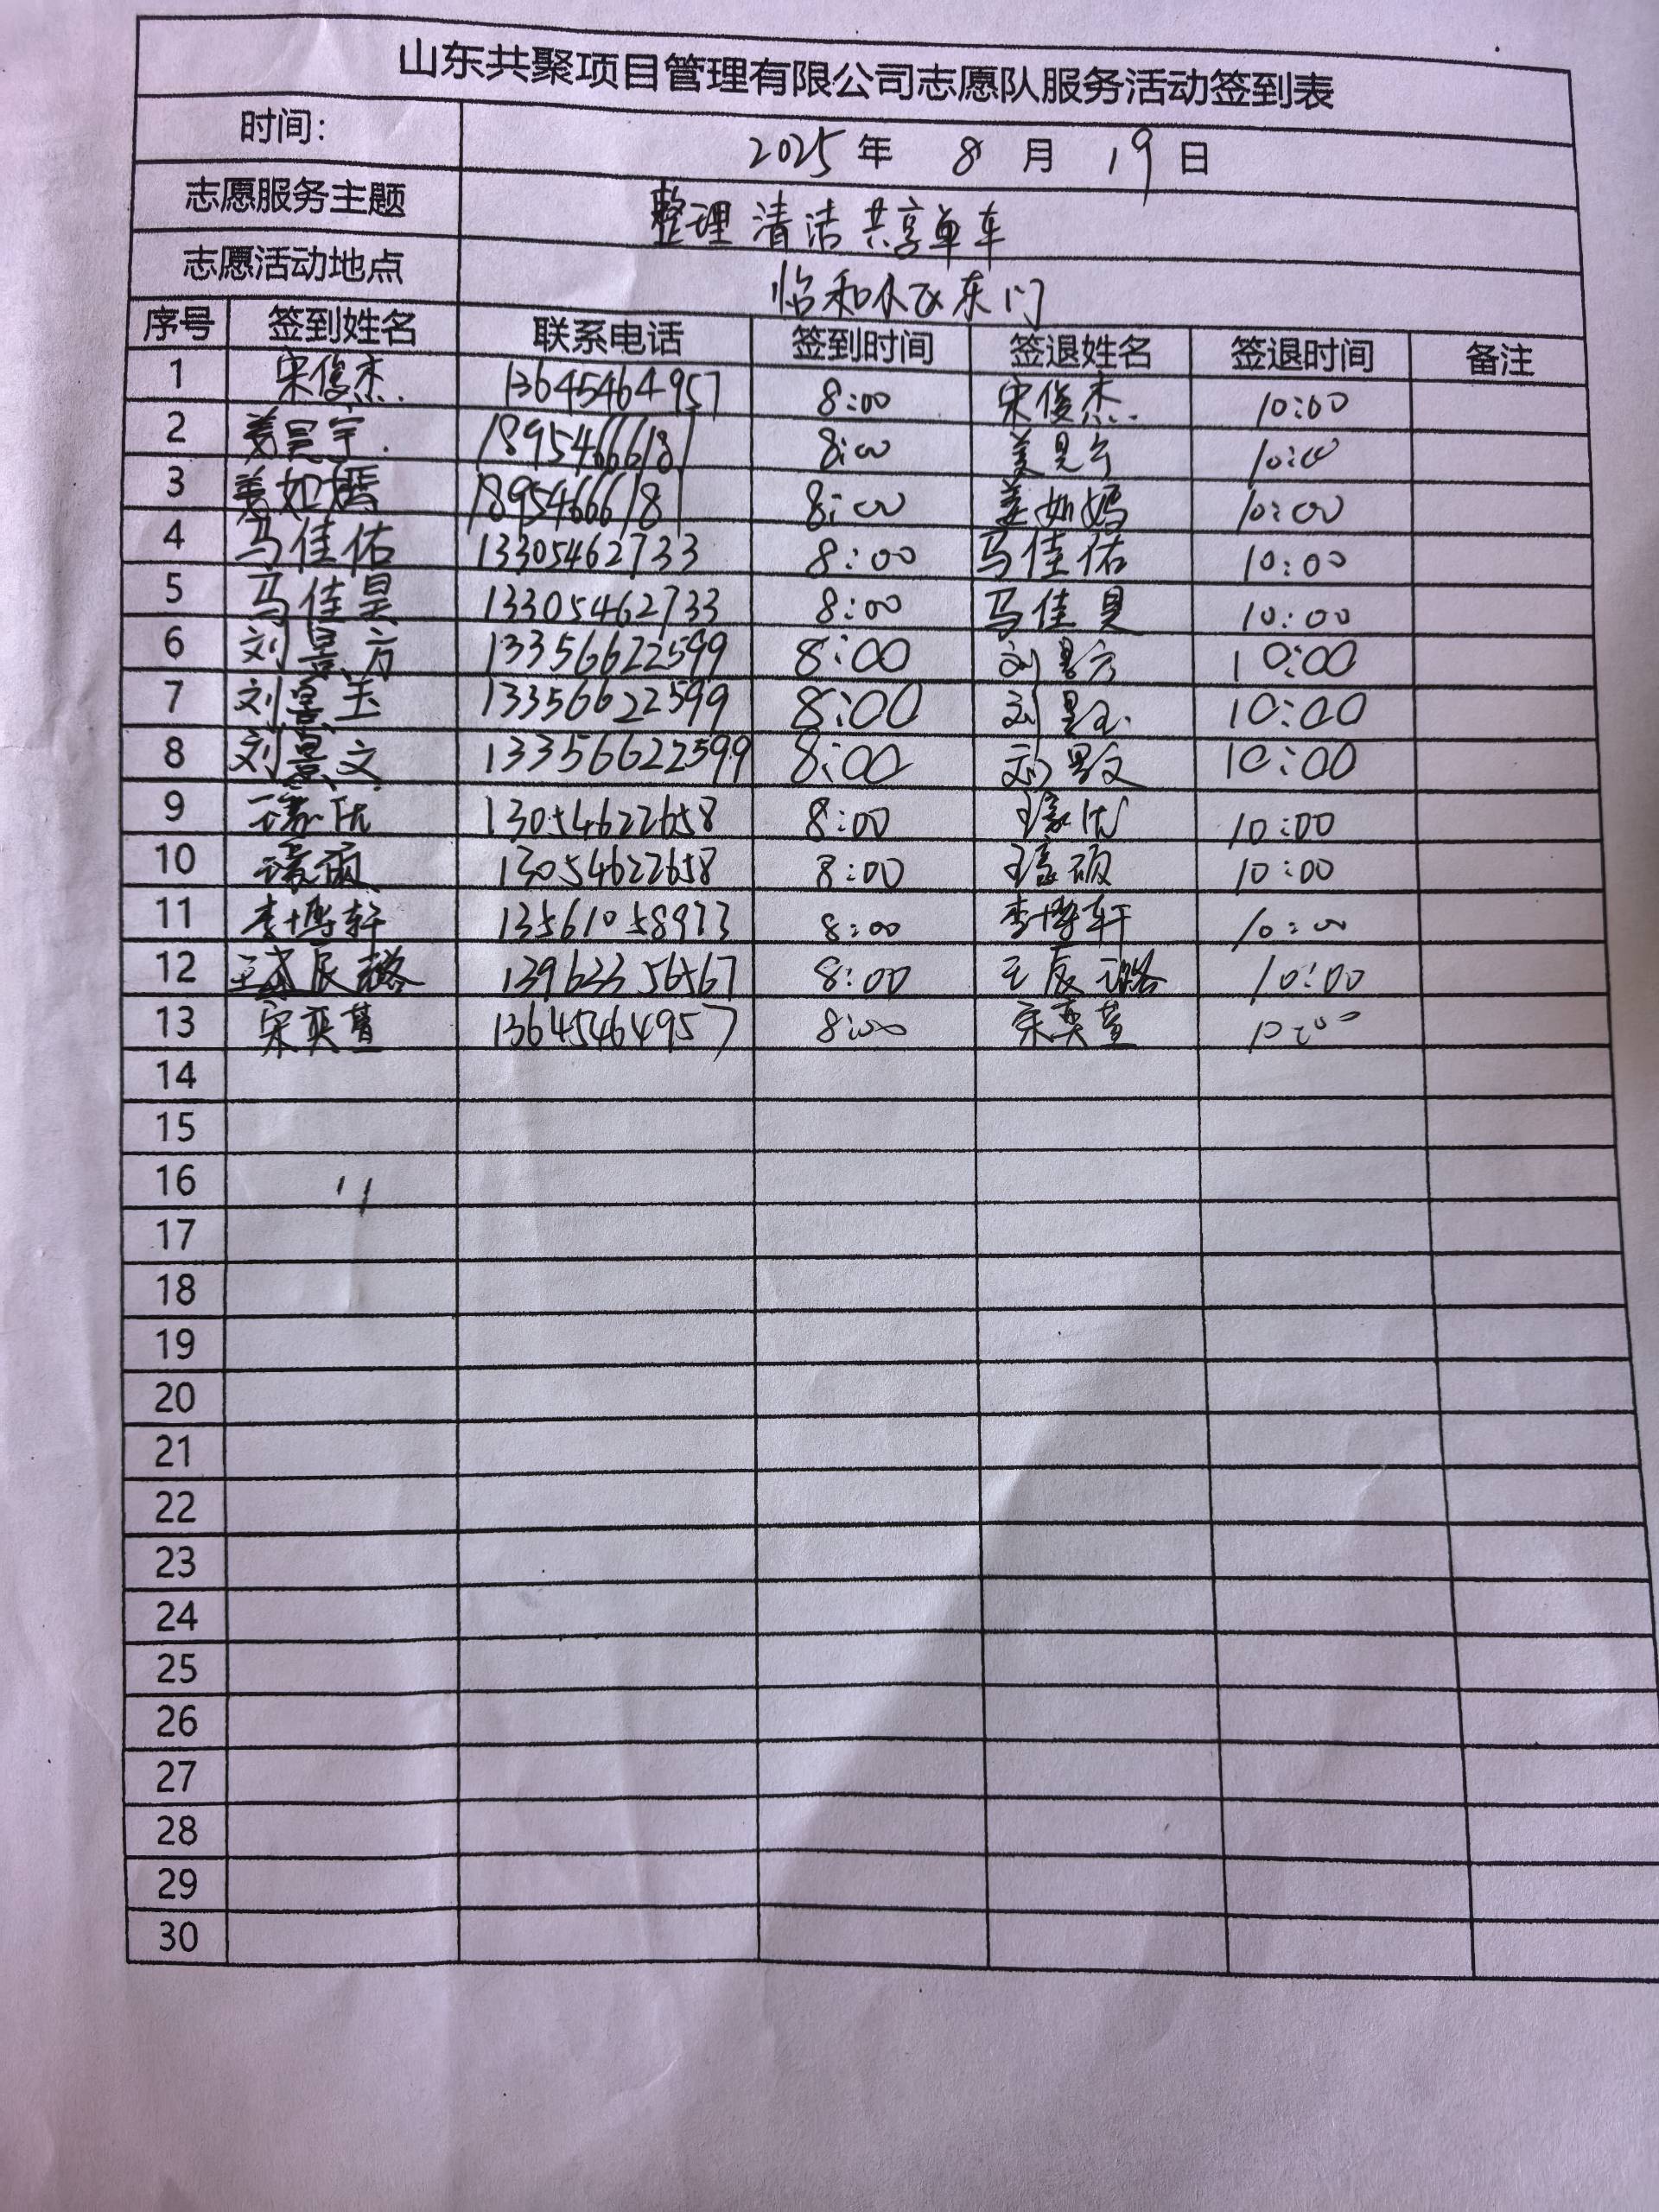 山东共聚项目管理有限公司志愿队服务活动签到表
时间: 2025年 8月 19日
志愿服务主题 整理清洁共享单车
志愿活动地点 怡和小区东门
序号 签到姓名 联系电话 签到时间 签退姓名 签退时间 备注
1 宋俊杰 13645464957 8:00 宋俊杰 10:00
2 姜昊宇 18954666181 8:00 姜昊宇 10:00
3 姜如嫣 18954666181 8:00 姜如嫣 10:00
4 马佳佑 13305462733 8:00 马佳佑 10:00
5 马佳昊 13305462733 8:00 马佳昊 10:00
6 刘景方 13356622599 8:00 刘景方 10:00
7 刘景玉 13356622599 8:00 刘景玉 10:00
8 刘景文 13356622599 8:00 刘景文 10:00
9 13054622658 8:00 10:00
10 13054622658 8:00 10:00
11 李博轩 13561058973 8:00 李博轩 10:00
12 13963356567 8:00 10:00
13 宋奕萱 13645464957 8:00 宋奕萱 10:00
14
15
16
17
18
19
20
21
22
23
24
25
26
27
28
29
30